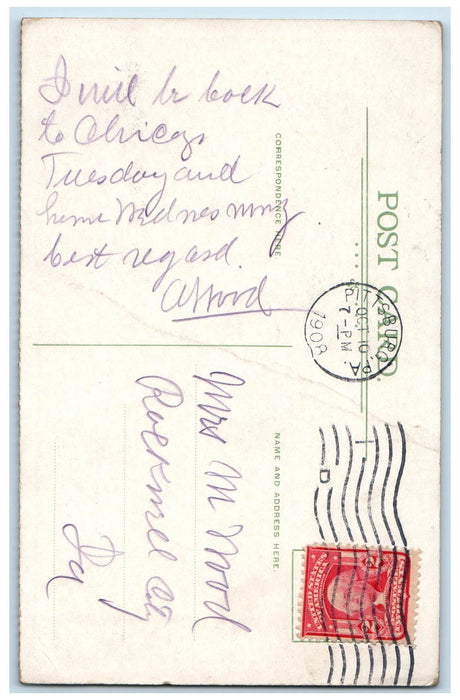 POST CARD.
CORRESPONDENCE HERE
NAME AND ADDRESS HERE.
I will be back
to Chicago
Tuesday and
home Wednes
best regard.
A Wood
PITTSBURG, PA.
OCT 10
7-PM
1908
D
Mrs M Wood
Rockwell City
Ia